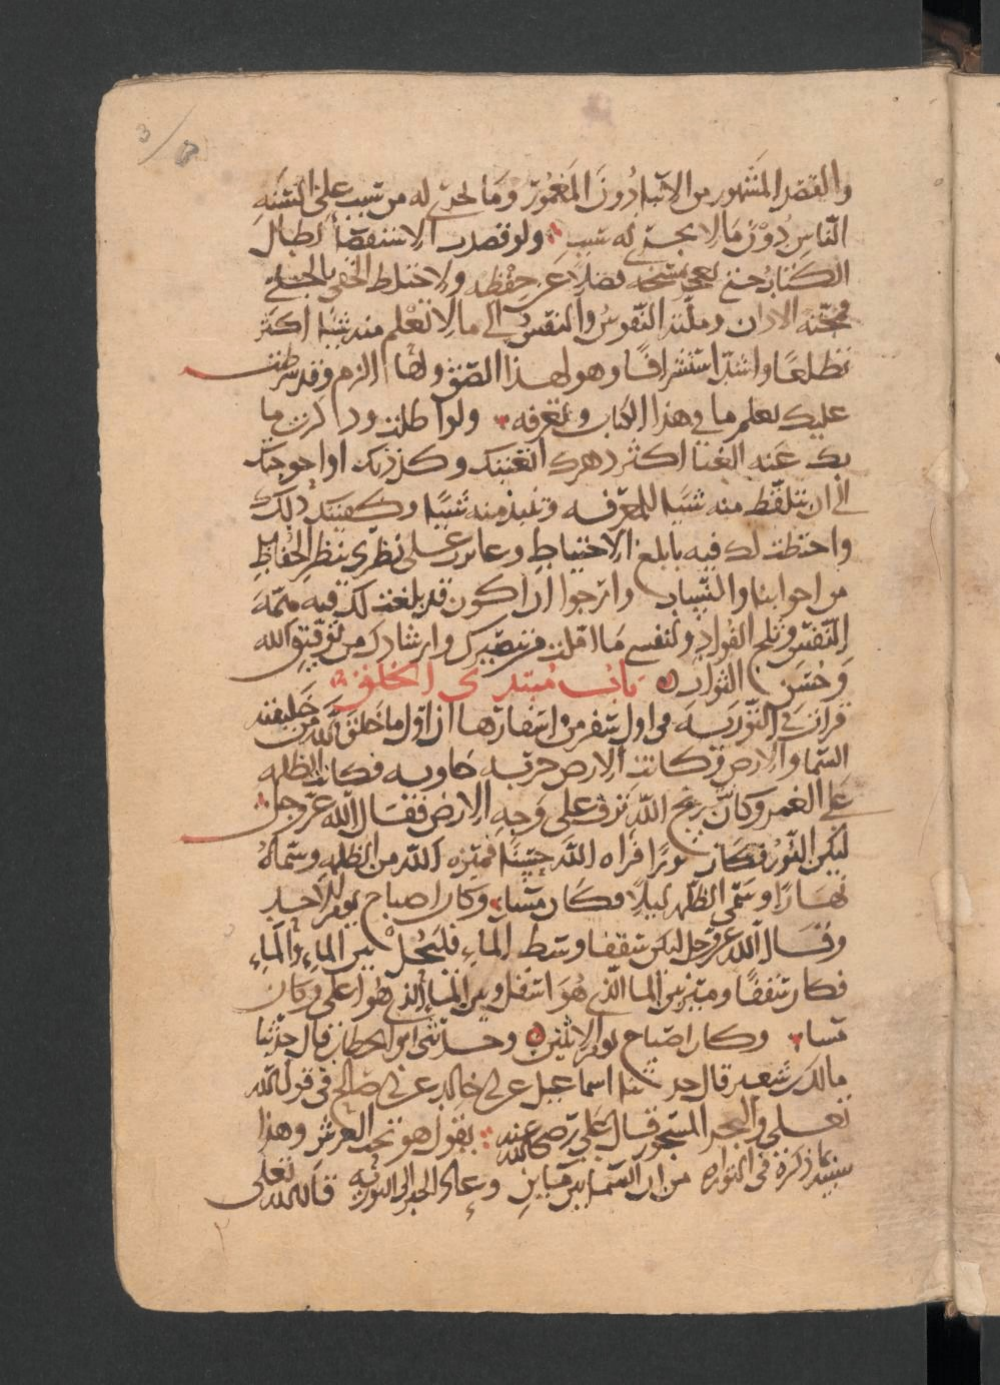 3/
والقصد المشهور من الانباء دون المغمور وما يجري له من سبب على السنه
الناس دون ما لا يجري له سبب ولو قصدت الاستقصا لطال
الكتاب حتى يعجز نسخه فضلا عن حفظه ولاختلط الخفي بالجلي
فمجته الاذان وملته النفوس والنفس الى ما لا تعلم منه شيا اكثر
تطلعا واشد استشرافا وهو لهذا الصنف ولها الزم وقد شرطت
عليك تعلم ما في هذا الكتاب وتعرفه ولو اطلت وذاكرت ما
بك عنه الغنا اكثر دهرك اتعبتك وكددتك او احوجتك
الى ان تتلقط منه شيا للمعرفه وتنبذ منه شيا وكفيتك ذلك
واحتطت لك فيه بابلغ الاحتياط وعايرت على نظري بنظر الحفاظ
من اخواننا والنساب وارجوا ان اكون قد بلغت لك فيه همه
النفس وثلج الفواد ولنفسي ما املت من تبصيرك وارشادك من توفيق الله
وحسن الثواب باب مبتدى الخلق
قرات في التوريه في اول سفر من اسفارها ان اول ما خلق الله من خليقته
السما والارض وكانت الارض خربه خاويه فكانت الظلمه
على الغمر وكان ريح الله تزف على وجه الارض فقال الله عز وجل
ليكن النور فكان نورا فراه الله حسنا فميزه الله من الظلمه وسماه
نهارا وسمى الظلمه ليلا فكان مسا وكان اصباح يوم الاحد
وقال الله عز وجل ليكن سقفا وسط الماء فليحل بين الماء والماء
فكان سقفا وميز بين الما الذي هو اسفل وبين الما الذي هو اعلى وكان
مسا وكان اصباح يوم الاثنين وحدثني ابو الخطاب قال حدثنا
مالك بن سعير قال حدثنا اسماعيل بن ابي خالد عن ابي صالح في قول الله
تعلى والبحر المسجور قال علي رضي الله عنه يقول هو تحت العرش وهذا
شبيه بما ذكره في التوراه من ان السما بين مائين